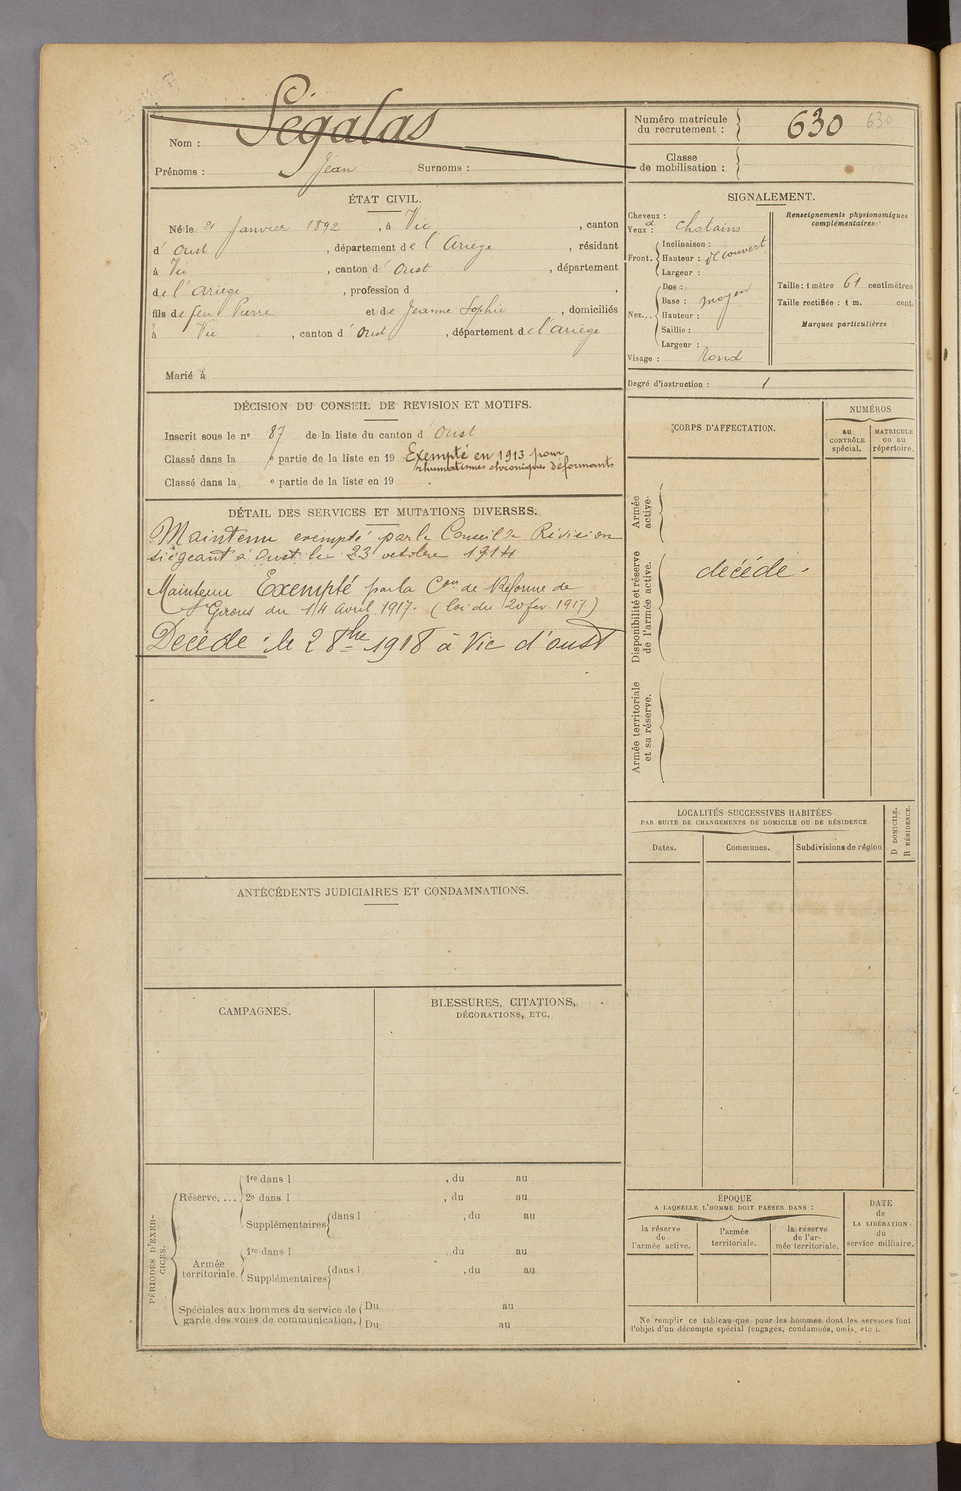 Nom : Ségalas
Prénoms : Jean Surnoms :
Numéro matricule du recrutement : 630 630
Classe de mobilisation :
ÉTAT CIVIL.
Né le 21 Janvier 1892, à Vic, canton
d'Oust, département de l'Ariège, résidant
à Vic, canton d'Oust, département
de l'Ariège, profession d
fils de feu Pierre et de Jeanne Sophie, domiciliés
à Vic, canton d'Oust, département de l'Ariège
Marié à
SIGNALEMENT.
Cheveux :
Yeux : et chatains
Front. Inclinaison :
Hauteur : découvert
Largeur :
Nez... Dos :
Base : moyen
Hauteur :
Saillie :
Largeur :
Visage : rond
Renseignements physionomiques
complémentaires.
Taille : 1 mètre 61 centimètres
Taille rectifiée : 1 m. cent.
Marques particulières
Degré d'instruction : 1
DÉCISION DU CONSEIL DE REVISION ET MOTIFS.
Inscrit sous le n° 87 de la liste du canton d'Oust
Classé dans la e partie de la liste en 19 Exempté en 1913 pour
rhumatismes chroniques déformants
Classé dans la e partie de la liste en 19 .
DÉTAIL DES SERVICES ET MUTATIONS DIVERSES.
Maintenu exempté par le Conseil de Révision
siégeant à Oust le 23 octobre 1914
Maintenu Exempté par la Con de Réforme de
St Girons du 14 avril 1917. (loi du 20 fev 1917)
Décédé le 2 8bre 1918 à Vic d'oust
CORPS D'AFFECTATION.
NUMÉROS
au
CONTRÔLE
spécial.
MATRICULE
ou au
répertoire.
Armée
active.
Disponibilité et réserve
de l'armée active.
décédé.
Armée territoriale
et sa réserve.
LOCALITÉS SUCCESSIVES HABITÉES
PAR SUITE DE CHANGEMENTS DE DOMICILE OU DE RÉSIDENCE
Dates.
Communes.
Subdivisions de région
D DOMICILE.
R RÉSIDENCE.
ANTÉCÉDENTS JUDICIAIRES ET CONDAMNATIONS.
CAMPAGNES.
BLESSURES, CITATIONS,
DÉCORATIONS, ETC.
PÉRIODES D'EXER-
CICES.
Réserve, ... 1re dans l , du au
2e dans l , du au
Supplémentaires dans l , du au
Armée
territoriale. 1re dans l , du au
Supplémentaires dans l , du au
Spéciales aux hommes du service de
garde des voies de communication.
Du au
Du au
ÉPOQUE
A LAQUELLE L'HOMME DOIT PASSER DANS :
la réserve
de
l'armée active.
l'armée
territoriale.
la réserve
de l'ar-
mée territoriale.
DATE
de
LA LIBÉRATION
du
service militaire.
Ne remplir ce tableau que pour les hommes dont les services font
l'objet d'un décompte spécial (engagés, condamnés, omis, etc.).